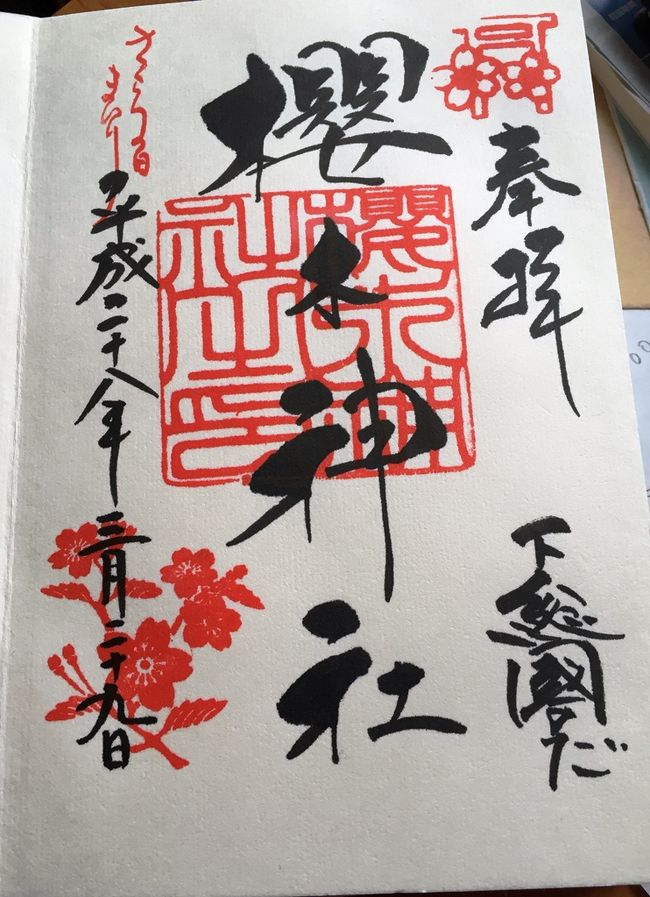 奉拝
下総國のだ
櫻木神社
櫻木神社之印
さくらの日
まいり
平成二十八年三月二十九日